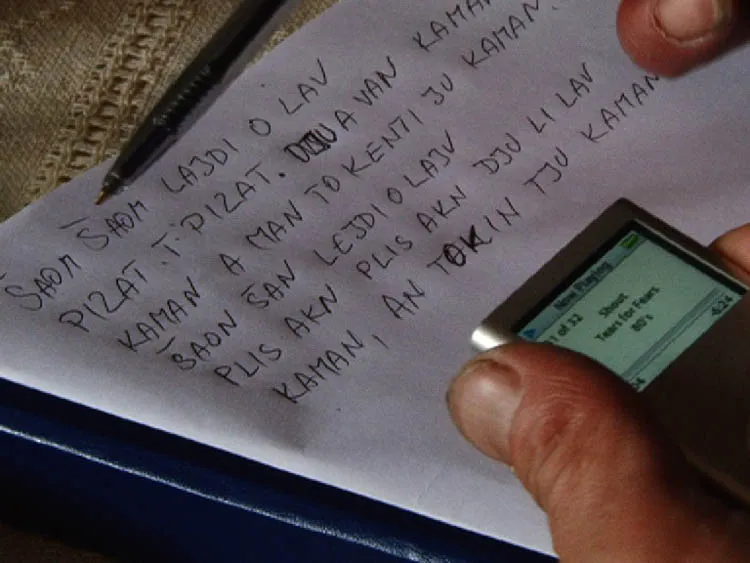 ŠAOM ŠAOM LAJDI O LAV
PIZAT. T. PIZAT. A VAN KAMAN
KAMAN A MAN TO KENTI JU KAMAN.
ŠAON ŠAN LEJDI O LAJV
PLIS AKN PLIS AKN DJU LI LAV
KAMAN, AN TOKIN TJU KAMAN
Now Playing
1 of 32
Shout
Tears for Fears
80's
-6:24